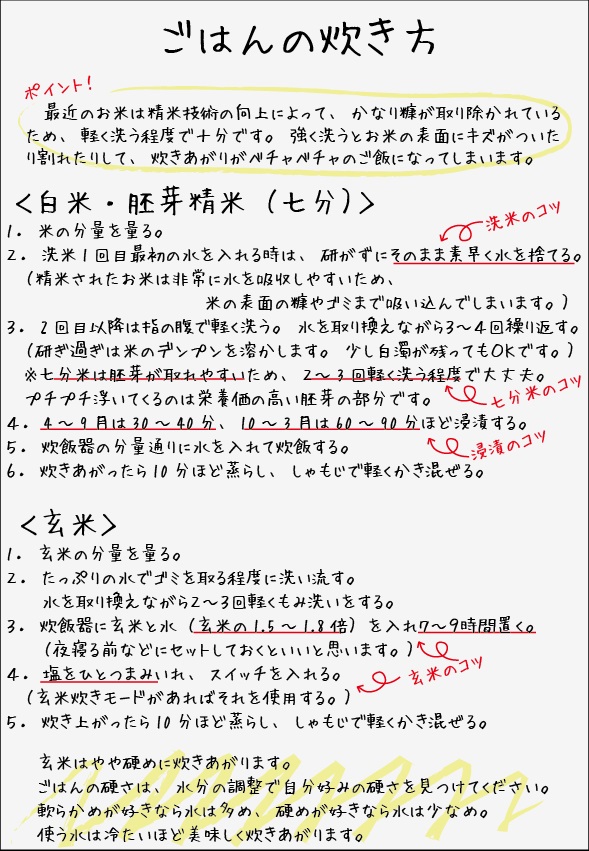 ごはんの炊き方
ポイント!
最近のお米は精米技術の向上によって、かなり糠が取り除かれている
ため、軽く洗う程度で十分です。強く洗うとお米の表面にキズがついた
り割れたりして、炊きあがりがベチャベチャのご飯になってしまいます。
<白米・胚芽精米(七分)>
1. 米の分量を量る。
洗米のコツ
2. 洗米1回目最初の水を入れる時は、研がずにそのまま素早く水を捨てる。
(精米されたお米は非常に水を吸収しやすいため、
米の表面の糠やゴミまで吸い込んでしまいます。)
3. 2回目以降は指の腹で軽く洗う。水を取り換えながら3〜4回繰り返す。
(研ぎ過ぎは米のデンプンを溶かします。少し白濁が残ってもOKです。)
※七分米は胚芽が取れやすいため、2〜3回軽く洗う程度で大丈夫。
プチプチ浮いてくるのは栄養価の高い胚芽の部分です。
七分米のコツ
4. 4〜9月は30〜40分、10〜3月は60〜90分ほど浸漬する。
浸漬のコツ
5. 炊飯器の分量通りに水を入れて炊飯する。
6. 炊きあがったら10分ほど蒸らし、しゃもじで軽くかき混ぜる。
<玄米>
1. 玄米の分量を量る。
2. たっぷりの水でゴミを取る程度に洗い流す。
水を取り換えながら2〜3回軽くもみ洗いをする。
3. 炊飯器に玄米と水(玄米の1.5〜1.8倍)を入れ7〜9時間置く。
(夜寝る前などにセットしておくといいと思います。)
玄米のコツ
4. 塩をひとつまみいれ、スイッチを入れる。
(玄米炊きモードがあればそれを使用する。)
5. 炊き上がったら10分ほど蒸らし、しゃもじで軽くかき混ぜる。
玄米はやや硬めに炊きあがります。
ごはんの硬さは、水分の調整で自分好みの硬さを見つけてください。
軟らかめが好きなら水は多め、硬めが好きなら水は少なめ。
使う水は冷たいほど美味しく炊きあがります。